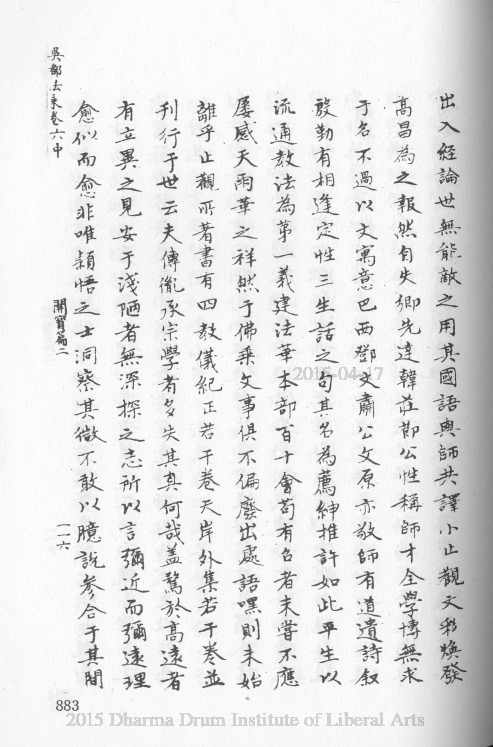 出入經論世無能敵之用其國語與師共譯小止觀文彩煥發
高昌為之報然自失鄉先達韓莊節公性稱師才全學博無求
于名不過以文寓意巴西鄧文肅公文原亦敬師有道遺詩叙
殷勤有相逢定性三生話之句其名為薦紳推許如此平生以
流通教法為第一義建法華本部百十會苟有召者未嘗不應
屢感天雨華之祥然于佛乘文事俱不偏廢出處語嘿則未始
離乎止觀所著書有四教儀紀正若干卷天岸外集若干卷並
刊行于世云夫傳胤承宗學者多失其真何哉盖騖於高遠者
有立異之見安于淺陋者無深探之志所以言彌近而彌遠理
愈似而愈非唯頴悟之士洞察其微不敢以臆說參合于其間
吳都法乘卷六中
開寶篇二
一一六
883
2015-04-17
2015 Dharma Drum Institute of Liberal Arts